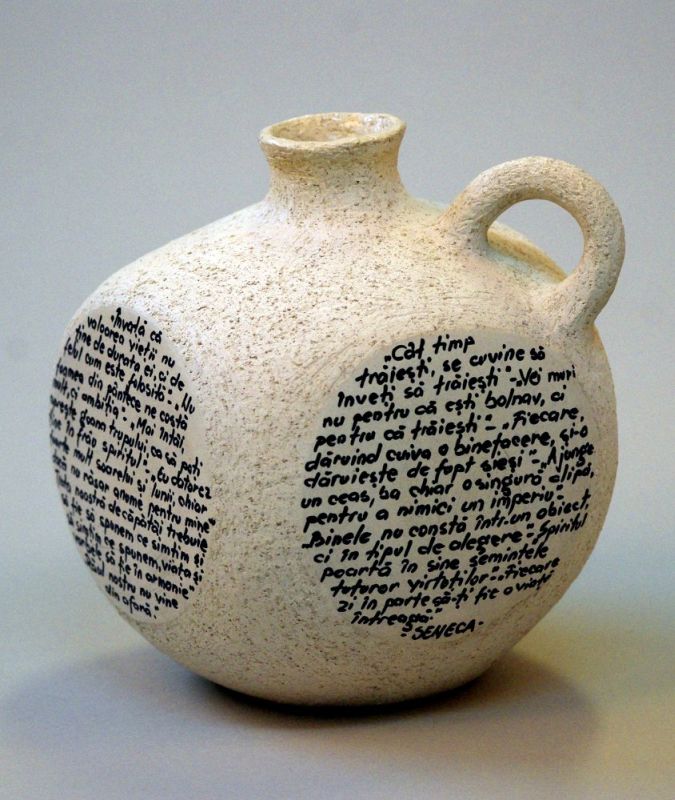 „Învață că
valoarea vieții nu
ține de durata ei, ci de
felul cum este folosită". „Nu
foamea din pântece ne costă
mult, ci ambiția". „Mai întâi
goana trupului, ca să poți
ține în frâu spiritul". „Eu datorez
foarte mult soarelui și lunii, chiar
dacă nu răsar anume pentru mine"
noastră de căpătâi trebuie
să fie să spunem ce simțim și
să simțim ce spunem, viața și
să fie în armonie".
nostru nu vine
din afară."
„Cât timp
trăiești, se cuvine să
înveți să trăiești"-„Vei muri
nu pentru că ești bolnav, ci
pentru că trăiești"-„Fiecare,
dăruind cuiva o binefacere, și-o
dăruiește de fapt sieși"-„Ajunge
un ceas, ba chiar o singură clipă,
pentru a nimici un imperiu"-
„Binele nu constă într-un obiect,
ci în tipul de alegere"-„Spiritul
poartă în sine semințele
tuturor virtuților"-„Fiecare
zi în parte să-ți fie o viață
întreagă."
-SENECA-